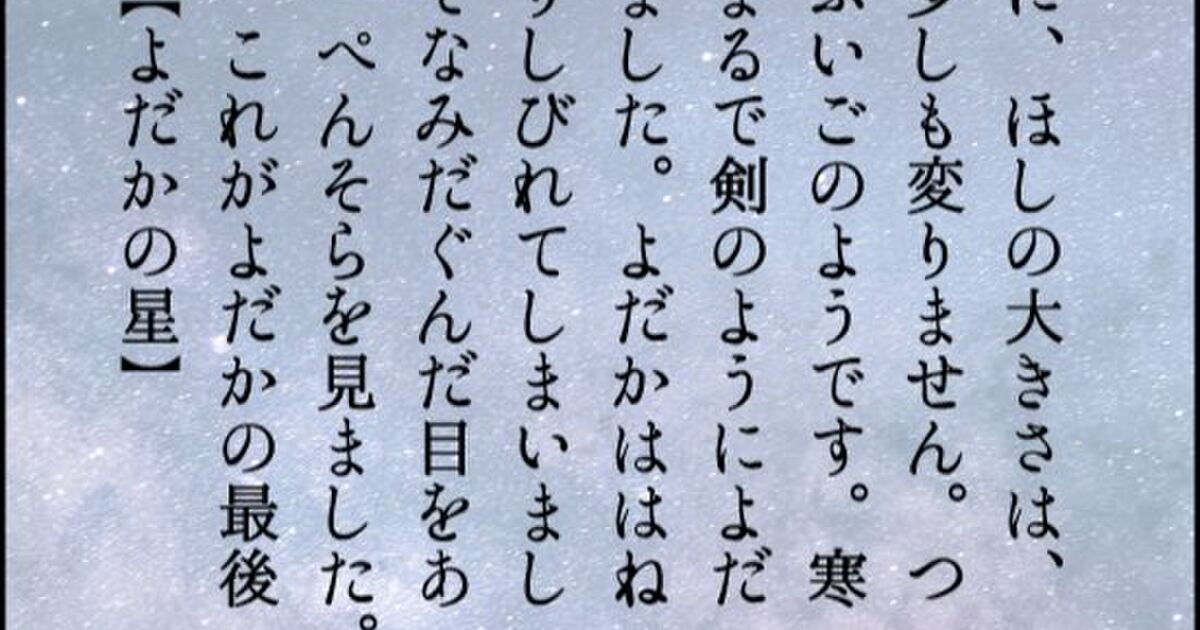 に、ほしの大きさは、
少しも変りません。つ
ふいごのようです。寒
まるで剣のようによだ
ました。よだかははね
りしびれてしまいまし
てなみだぐんだ目をあ
ぺんそらを見ました。
これがよだかの最後
【よだかの星】